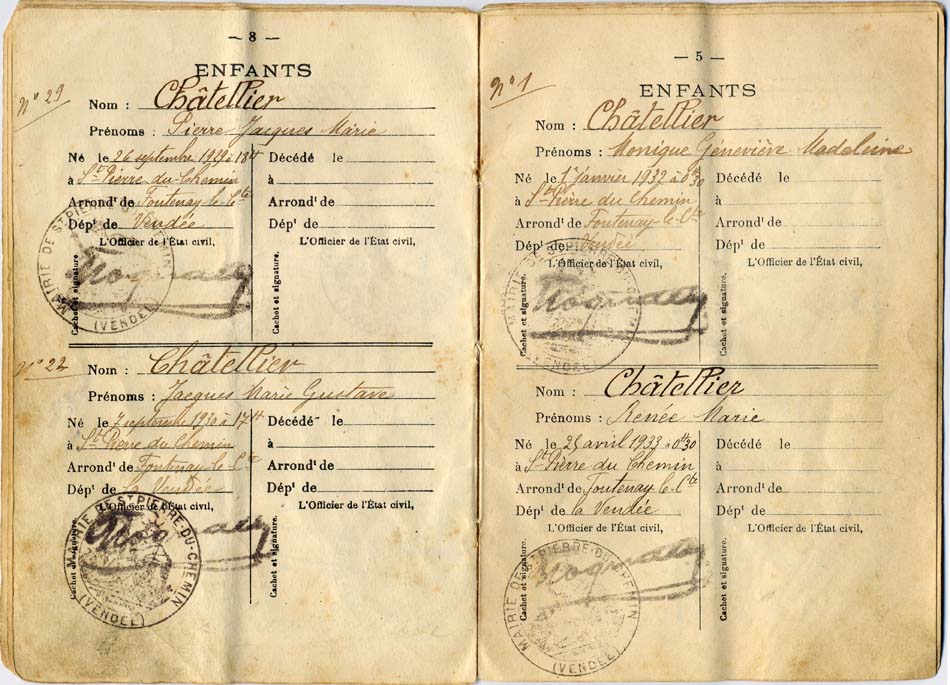 — 8 —
ENFANTS
Nº 29
Nom : Châtellier
Prénoms : Pierre Jacques Marie
Né le 26 septembre 1929 à 18H
à St Pierre du Chemin
Arrondt de Fontenay-le-Cte
Dépt de Vendée
L'Officier de l'État civil,
Cachet et signature.
MAIRIE DE ST PIERRE-DU-CHEMIN (VENDÉE)
Décédé le
à
Arrondt de
Dépt de
L'Officier de l'État civil,
Cachet et signature.
Nº 22
Nom : Châtellier
Prénoms : Jacques Marie Gustave
Né le 7 septembre 1930 à 17H
à St Pierre du Chemin
Arrondt de Fontenay-le-Cte
Dépt de la Vendée
L'Officier de l'État civil,
Cachet et signature.
MAIRIE DE ST PIERRE-DU-CHEMIN (VENDÉE)
Décédé le
à
Arrondt de
Dépt de
L'Officier de l'État civil,
Cachet et signature.
— 5 —
ENFANTS
Nº 1
Nom : Châtellier
Prénoms : Monique Géneviève Madeleine
Né le 1 janvier 1932 à 0H30
à St Pierre du Chemin
Arrondt de Fontenay-le-Cte
Dépt de Vendée
L'Officier de l'État civil,
Cachet et signature.
MAIRIE DE ST PIERRE-DU-CHEMIN (VENDÉE)
Décédé le
à
Arrondt de
Dépt de
L'Officier de l'État civil,
Cachet et signature.
Nom : Châtellier
Prénoms : Renée Marie
Né le avril 1933 à 0H30
à St Pierre du Chemin
Arrondt de Fontenay-le-Cte
Dépt de la Vendée
L'Officier de l'État civil,
Cachet et signature.
MAIRIE DE ST PIERRE-DU-CHEMIN (VENDÉE)
Décédé le
à
Arrondt de
Dépt de
L'Officier de l'État civil,
Cachet et signature.